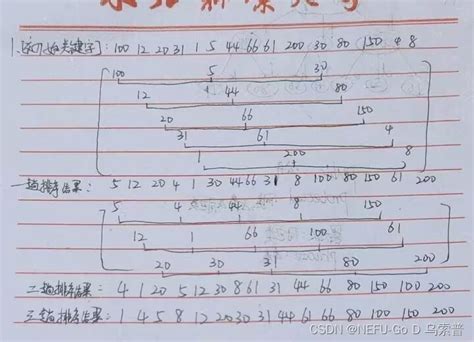 1. 初始关键字: 100 12 20 31 1 5 44 66 61 200 30 80 150 4 8
100 5 30
12 44 80
20 66 150
31 61 4
1 200 8
一趟排序结果: 5 12 20 4 1 30 44 66 31 8 100 80 150 61 200
5 4 44 8 150
12 1 66 100 61
20 30 31 80 200
二趟排序结果: 4 1 20 5 12 30 8 61 31 44 66 80 150 100 200
三趟排序结果: 1 4 5 8 12 20 30 31 44 61 66 80 100 150 200
CSDN @NEFU-Go D 乌索普